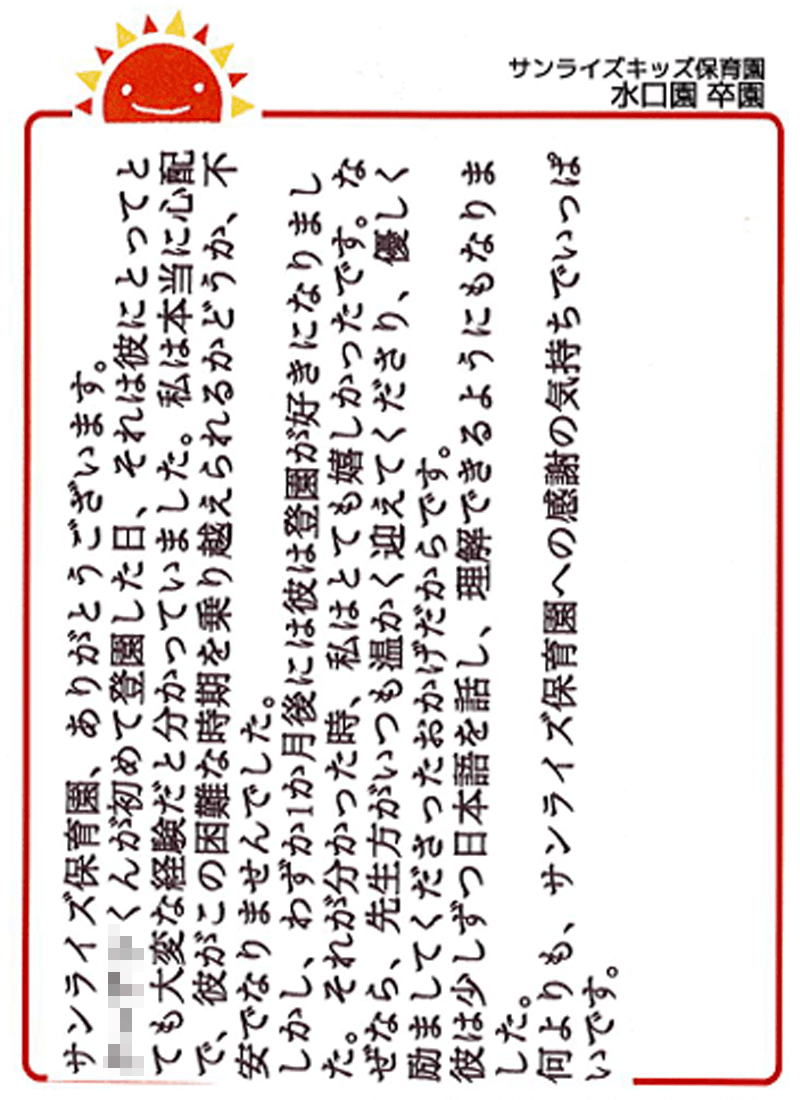 サンライズキッズ保育園
水口園 卒園
サンライズ保育園、ありがとうございます。
くんが初めて登園した日、それは彼にとってと
ても大変な経験だと分かっていました。私は本当に心配
で、彼がこの困難な時期を乗り越えられるかどうか、不
安でなりませんでした。
しかし、わずか1か月後には彼は登園が好きになりまし
た。それが分かった時、私はとても嬉しかったです。な
ぜなら、先生方がいつも温かく迎えてくださり、優しく
励ましてくださったおかげだからです。
彼は少しずつ日本語を話し、理解できるようにもなりま
した。
何よりも、サンライズ保育園への感謝の気持ちでいっぱ
いです。